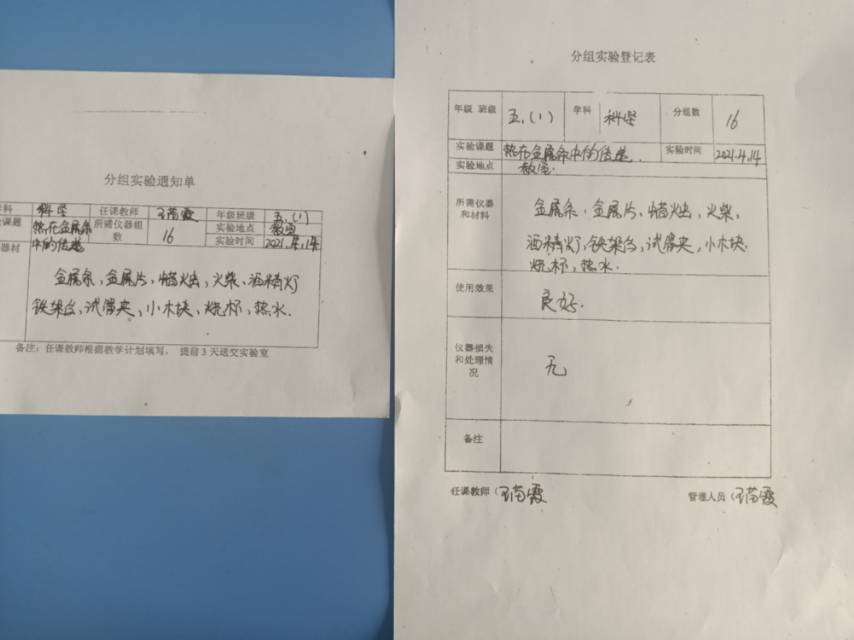 分组实验通知单
科 科学 任课教师 王苗霞 年级班级 五.(1)
课题 热在金属条中的传递 所需仪器组数 16 实验地点 教室
实验时间 2021.4.14
器材 金属条、金属片、蜡烛、火柴、酒精灯
铁架台、试管夹、小木块、烧杯、热水.
备注:任课教师根据教学计划填写, 提前3天送交实验室
分组实验登记表
年级 班级 五.(1) 学科 科学 分组数 16
实验课题 热在金属条中的传递. 实验时间 2021.4.14
实验地点 教室.
所需仪器和材料 金属条、金属片、蜡烛、火柴、
酒精灯、铁架台、试管夹、小木块.
烧杯、热水.
使用效果 良好.
仪器损失和处理情况 无
备注
任课教师(王苗霞 管理人员(王苗霞